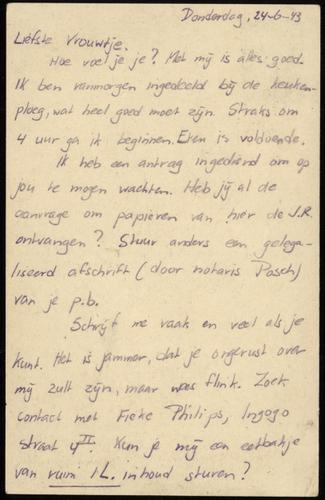 Donderdag, 24-6-43
Liefste Vrouwtje.
Hoe voel je je? Met mij is alles goed.
Ik ben vanmorgen ingedeeld bij de keuken-
ploeg, wat heel goed moet zijn. Straks om
4 uur ga ik beginnen. Eten is voldoende.
Ik heb een antrag ingediend om op
jou te mogen wachten. Heb jij al de
aanvrage om papieren van hier de J.R.
ontvangen? Stuur anders een gelega-
liseerd afschrift (door notaris Posch)
van je p.b.
Schrijf me vaak en veel als je
kunt. Het is jammer, dat je ongerust over
mij zult zijn, maar wees flink. Zoek
contact met Fieke Philips, Ingogo
straat 4 II. Kun je mij een eetbakje
van ruim 1 L. inhoud sturen?